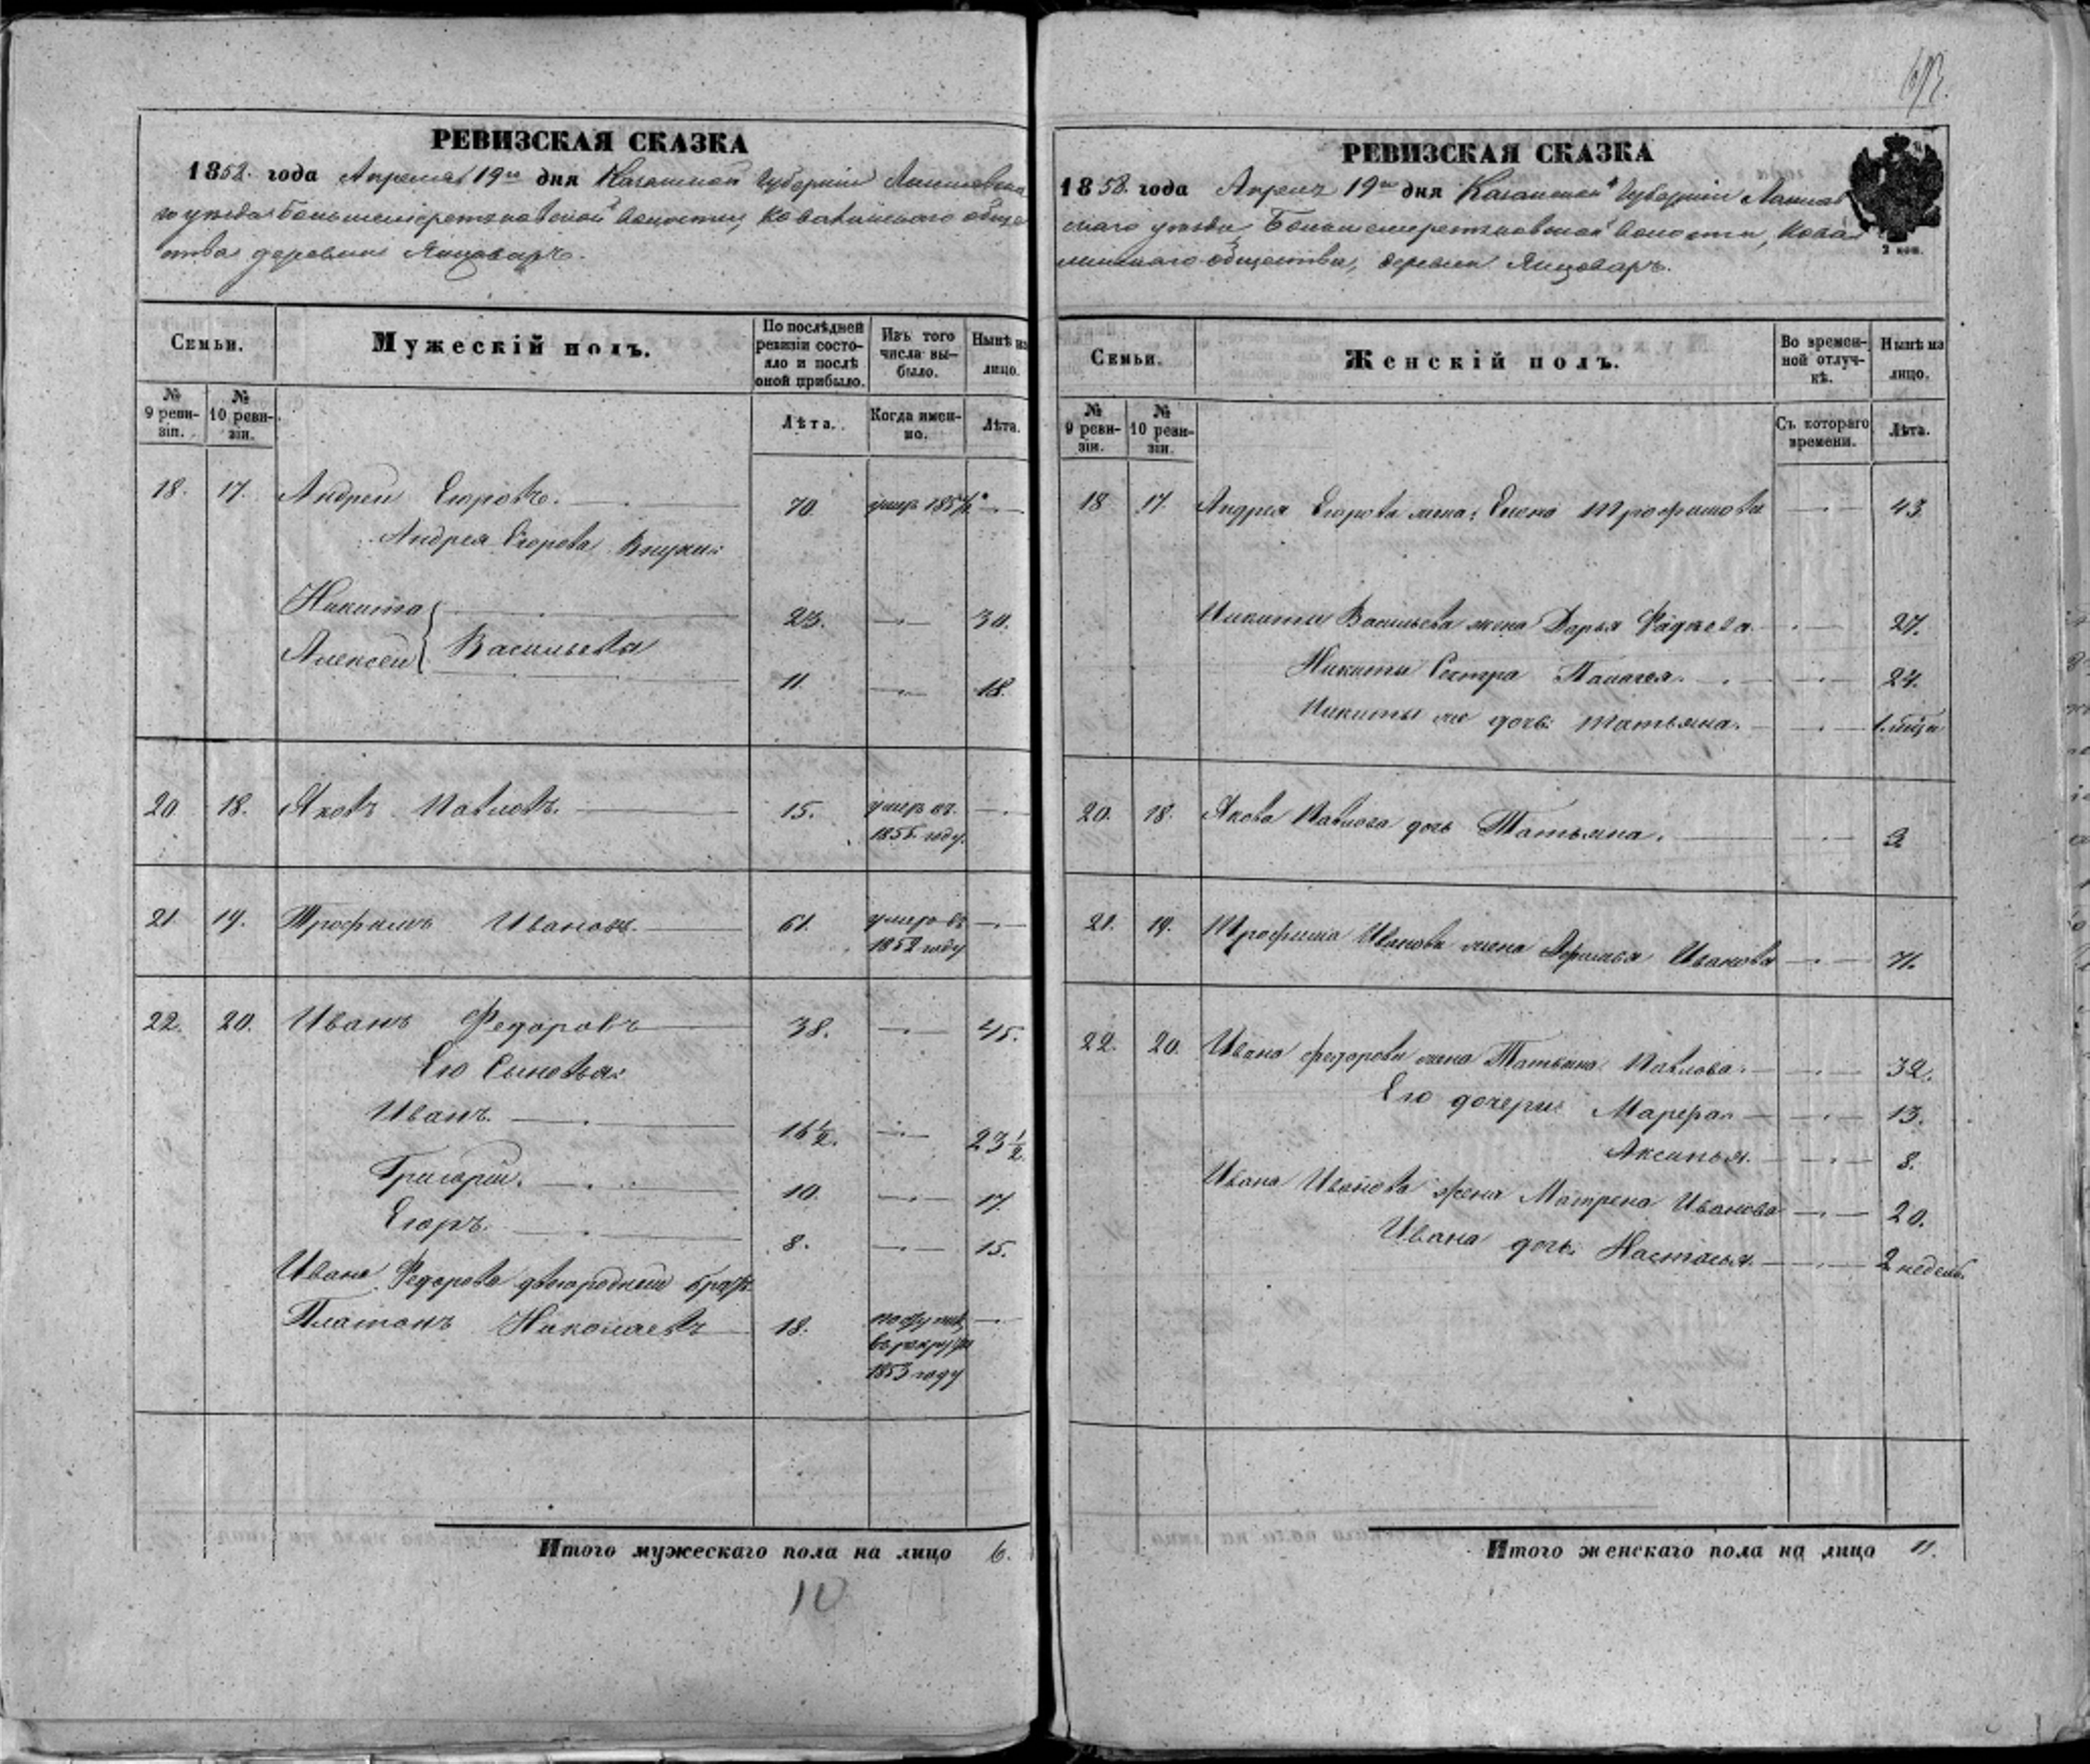 РЕВИЗСКАЯ СКАЗКА
1858. года Апреля 19го дня Казанской Губернiи Лаишевска
го уезда Большемеретъковской Волости, Ковалинскаго обще
ства деревни Янцоваръ.
Семьи.
Мужескiй полъ.
По послѣдней ревизiи состояло и послѣ оной прибыло.
Изъ того числа выбыло.
Нынѣ на лицо.
№ 9 ревизiи.
№ 10 ревизiи.
Лѣта.
Когда именно.
Лѣта.
18. 17. Андрей Егоровъ. 70. умеръ
Андрея Егорова Внуки:
Никита 23. 30.
Алексей Васильевы 11. 18.
20. 18. Яковъ Павловъ. 15. умеръ въ
1855 году.
21. 19. Трофимъ Ивановъ. 61. умеръ въ
1852 году
22. 20. Иванъ Федоровъ 38. 45.
Его Сыновья:
Иванъ. 16 1/2. 23 1/2
Григорiй. 10. 17.
Егоръ. 8. 15.
Ивана Федорова двоюродный братъ
Платонъ Николаевъ 18.
въ рекруты
1853 году
Итого мужескаго пола на лицо 6.
10
РЕВИЗСКАЯ СКАЗКА
1858. года Апреля 19го дня Казанской Губернiи Лаишев
скаго уезда, Большемеретьковской Волости, Кова
линскаго общества, деревни Янцоваръ.
2 коп.
Семьи.
Женскiй полъ.
Во временной отлучкѣ.
Нынѣ на лицо.
№ 9 ревизiи.
№ 10 ревизiи.
Съ котораго времени.
Лѣта.
18 17. Андрея Егорова жена: Елена Трофимова 43
Никиты Васильева жена Дарья 27.
Никиты Сестра Палагея. 24.
Никиты же дочь Татьяна.
20. 18. Якова Павлова дочь Татьяна. 3
21. 19. Трофима Иванова жена Афимья Иванова 71.
22. 20. Ивана Федорова жена Татьяна Павлова. 32.
Его дочери: Марфа 13.
Аксинья. 8.
Ивана Иванова жена Матрена Иванова 20.
Ивана дочь Настасья. 2 недель
Итого женскаго пола на лицо 11.